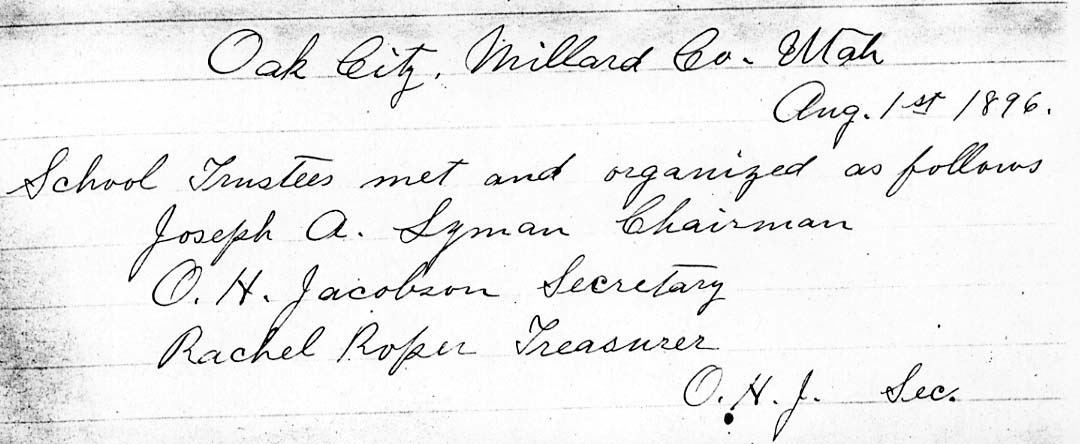 Oak City, Millard Co. Utah
Aug. 1st 1896.
School Trustees met and organized as follows
Joseph A. Lyman Chairman
O. H. Jacobson Secretary
Rachel Roper Treasurer
O. H. J. Sec.